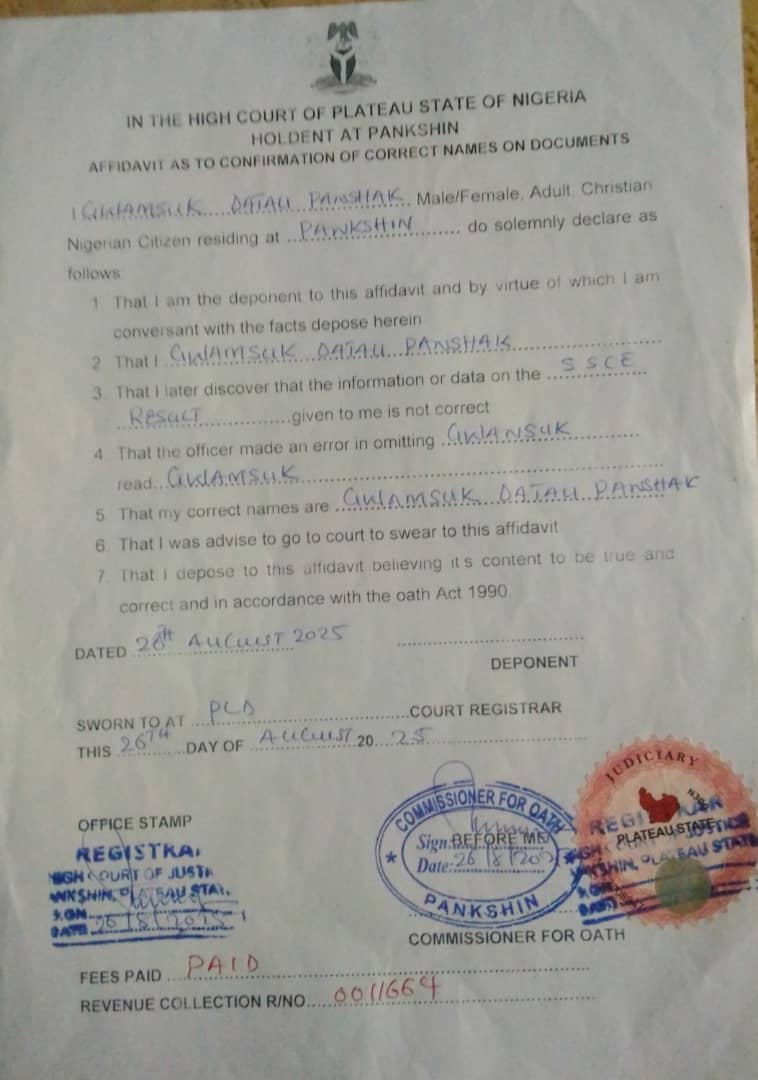 IN THE HIGH COURT OF PLATEAU STATE OF NIGERIA
HOLDENT AT PANKSHIN
AFFIDAVIT AS TO CONFIRMATION OF CORRECT NAMES ON DOCUMENTS
I GWAMSUK DATAU PANSHAK Male/Female, Adult, Christian
Nigerian Citizen residing at PANKSHIN do solemnly declare as
follows
1 That I am the deponent to this affidavit and by virtue of which I am
conversant with the facts depose herein
2 That I GWAMSUK DATAU PANSHAK
3. That I later discover that the information or data on the SSCE
RESULT given to me is not correct
4 That the officer made an error in omitting GWANSUK
read GWAMSUK
5. That my correct names are GWAMSUK DATAU PANSHAK
6. That I was advise to go to court to swear to this affidavit
7. That I depose to this affidavit believing it's content to be true and
correct and in accordance with the oath Act 1990
DATED AUGUST 2025
DEPONENT
SWORN TO AT COURT REGISTRAR
THIS 26TH DAY OF AUGUST 20 25
OFFICE STAMP
REGISTRAR
HIGH COURT OF JUSTI
PLATEAU STAT
DATE 26/8/2025
COMMISSIONER FOR OATH
Sign: BEFORE ME
Date: 26/8/2025
PANKSHIN
JUDICIARY
PLATEAU STATE
N300
REGISTRAR
PLATEAU STATE
COMMISSIONER FOR OATH
FEES PAID PAID
REVENUE COLLECTION R/NO 0011664